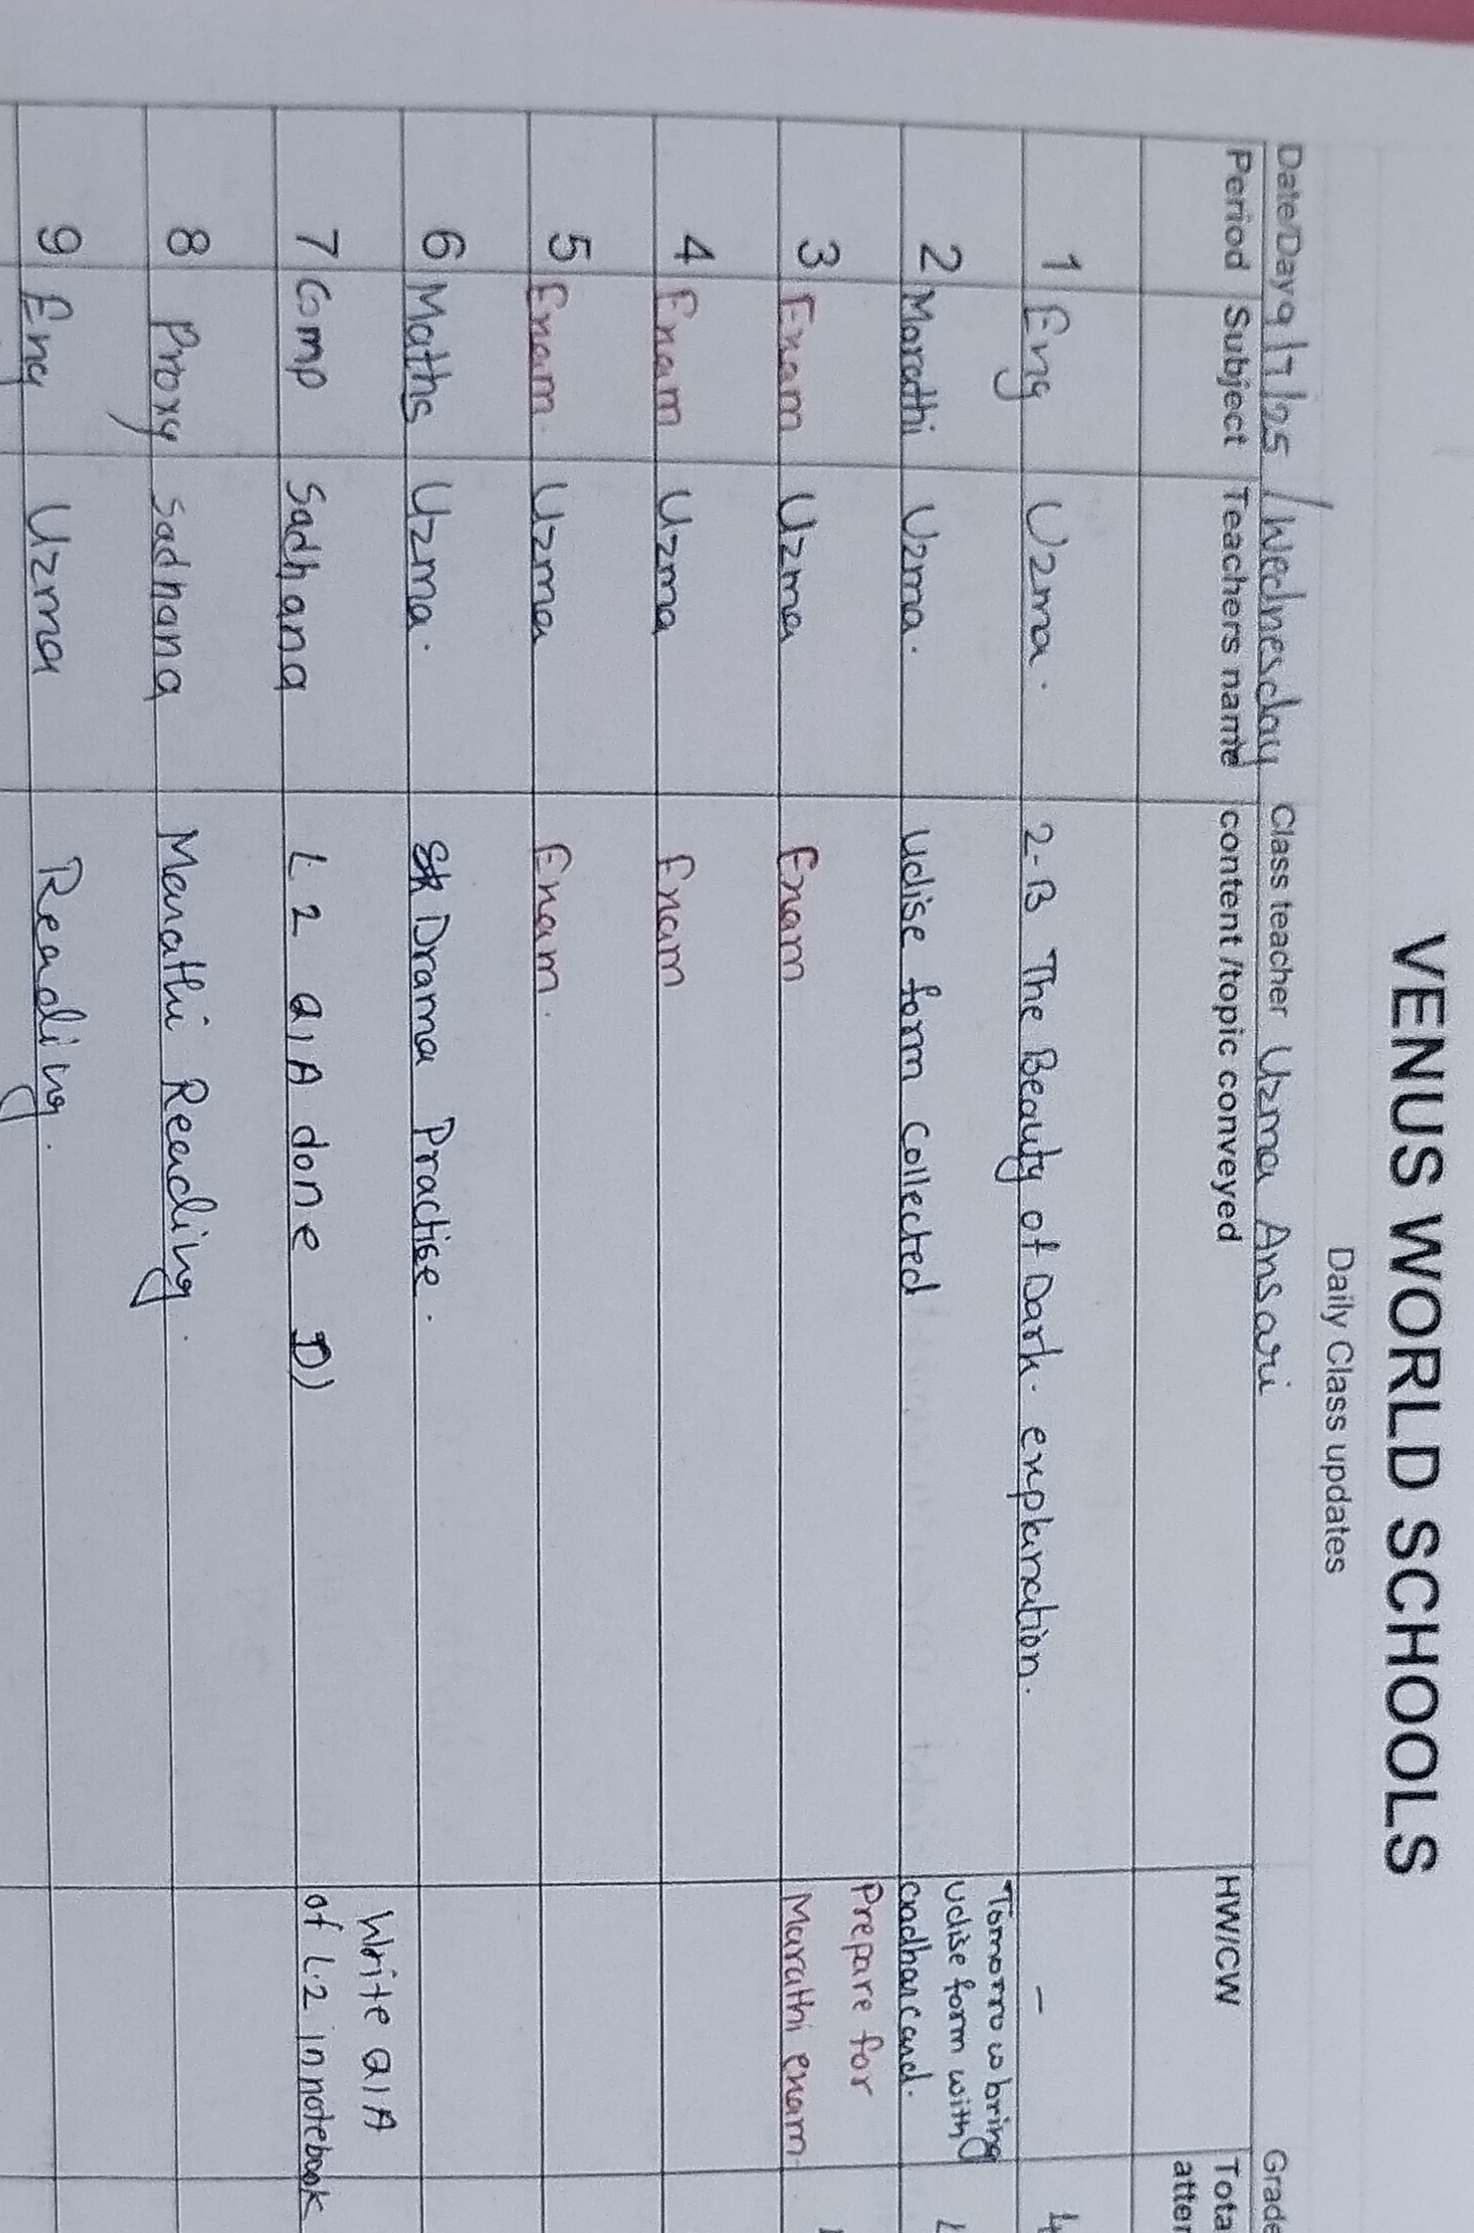 VENUS WORLD SCHOOLS
Daily Class updates
Date/Day 9/7/25 / Wednesday Class teacher Uzma Ansari Grade
Period Subject Teachers name content /topic conveyed HW/CW Tota
atter
1 Eng Uzma. 2-B The Beauty of Dark. explanation. -
2 Marathi Uzma. Udise form Collected Tomorrow bring
udise form with
aadharcard.
3 Exam Uzma Exam Prepare for
Marathi exam
4 Exam Uzma Exam
5 Exam. Uzma Exam.
6 Maths Uzma. Drama Practise.
7 Comp Sadhana L 2 Q/A done D) Write Q/A
of L.2 in notebook
8 Proxy Sadhana Marathi Reading.
9 Eng Uzma Reading.